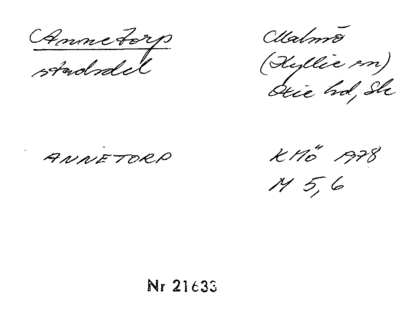 Annetorp
stadsdel
Malmö
(Hyllie sn)
Oxie hd, Sk
ANNETORP
KMÖ 1978
M 5,6
Nr 21633